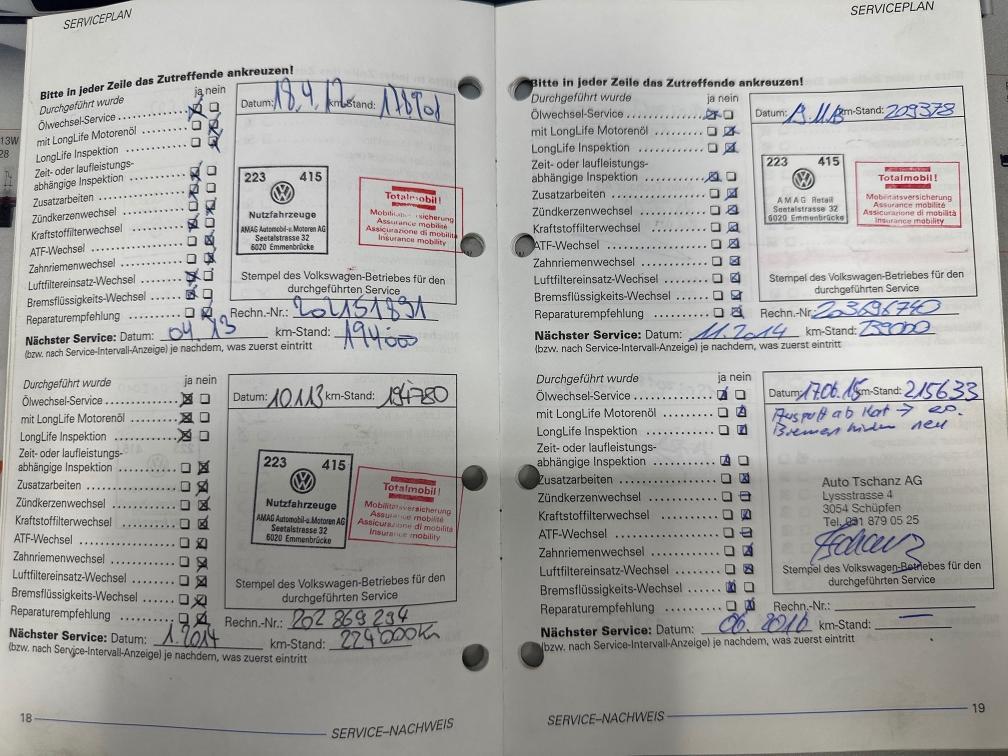 SERVICEPLAN
Bitte in jeder Zeile das Zutreffende ankreuzen!
Durchgeführt wurde ja nein
Ölwechsel-Service
mit LongLife Motorenöl
LongLife Inspektion
Zeit- oder laufleistungs-
abhängige Inspektion
Zusatzarbeiten
Zündkerzenwechsel
Kraftstoffilterwechsel
ATF-Wechsel
Zahnriemenwechsel
Luftfiltereinsatz-Wechsel
Bremsflüssigkeits-Wechsel
Reparaturempfehlung
Datum: 18.4.12 km-Stand:
223 415
Nutzfahrzeuge
AMAG Automobil-u. Motoren AG
Seetalstrasse 32
6020 Emmenbrücke
Totalmobil!
Mobilitätsversicherung
Assurance mobilité
Assicurazione di mobilità
Insurance mobility
Stempel des Volkswagen-Betriebes für den
durchgeführten Service
Rechn.-Nr.: 202151891
Nächster Service: Datum: 04.13 km-Stand: 194000
(bzw. nach Service-Intervall-Anzeige) je nachdem, was zuerst eintritt
Durchgeführt wurde ja nein
Ölwechsel-Service
mit LongLife Motorenöl
LongLife Inspektion
Zeit- oder laufleistungs-
abhängige Inspektion
Zusatzarbeiten
Zündkerzenwechsel
Kraftstoffilterwechsel
ATF-Wechsel
Zahnriemenwechsel
Luftfiltereinsatz-Wechsel
Bremsflüssigkeits-Wechsel
Reparaturempfehlung
Datum: 10.1.13 km-Stand: 194780
223 415
Nutzfahrzeuge
AMAG Automobil-u. Motoren AG
Seetalstrasse 32
6020 Emmenbrücke
Totalmobil!
Mobilitätsversicherung
Assurance mobilité
Assicurazione di mobilità
Insurance mobility
Stempel des Volkswagen-Betriebes für den
durchgeführten Service
Rechn.-Nr.: 202 869 294
Nächster Service: Datum: 1.2014 km-Stand: 224000km
(bzw. nach Service-Intervall-Anzeige) je nachdem, was zuerst eintritt
18
SERVICE–NACHWEIS
SERVICEPLAN
Bitte in jeder Zeile das Zutreffende ankreuzen!
Durchgeführt wurde ja nein
Ölwechsel-Service
mit LongLife Motorenöl
LongLife Inspektion
Zeit- oder laufleistungs-
abhängige Inspektion
Zusatzarbeiten
Zündkerzenwechsel
Kraftstoffilterwechsel
ATF-Wechsel
Zahnriemenwechsel
Luftfiltereinsatz-Wechsel
Bremsflüssigkeits-Wechsel
Reparaturempfehlung
Datum: km-Stand: 209378
223 415
AMAG Retail
Seetalstrasse 32
6020 Emmenbrücke
Totalmobil!
Mobilitätsversicherung
Assurance mobilité
Assicurazione di mobilità
Insurance mobility
Stempel des Volkswagen-Betriebes für den
durchgeführten Service
Rechn.-Nr. 203696740
Nächster Service: Datum: 11.2014 km-Stand: 239000
(bzw. nach Service-Intervall-Anzeige) je nachdem, was zuerst eintritt
Durchgeführt wurde ja nein
Ölwechsel-Service
mit LongLife Motorenöl
LongLife Inspektion
Zeit- oder laufleistungs-
abhängige Inspektion
Zusatzarbeiten
Zündkerzenwechsel
Kraftstoffilterwechsel
ATF-Wechsel
Zahnriemenwechsel
Luftfiltereinsatz-Wechsel
Bremsflüssigkeits-Wechsel
Reparaturempfehlung
Datum: 17.06.15 km-Stand: 215633
Auspuff ab Kat →
Bremsen hinten neu
Auto Tschanz AG
Lyssstrasse 4
3054 Schüpfen
Tel. 031 879 05 25
Stempel des Volkswagen-Betriebes für den
durchgeführten Service
Rechn.-Nr.:
Nächster Service: Datum: 06.2016 km-Stand: —
(bzw. nach Service-Intervall-Anzeige) je nachdem, was zuerst eintritt
SERVICE–NACHWEIS
19